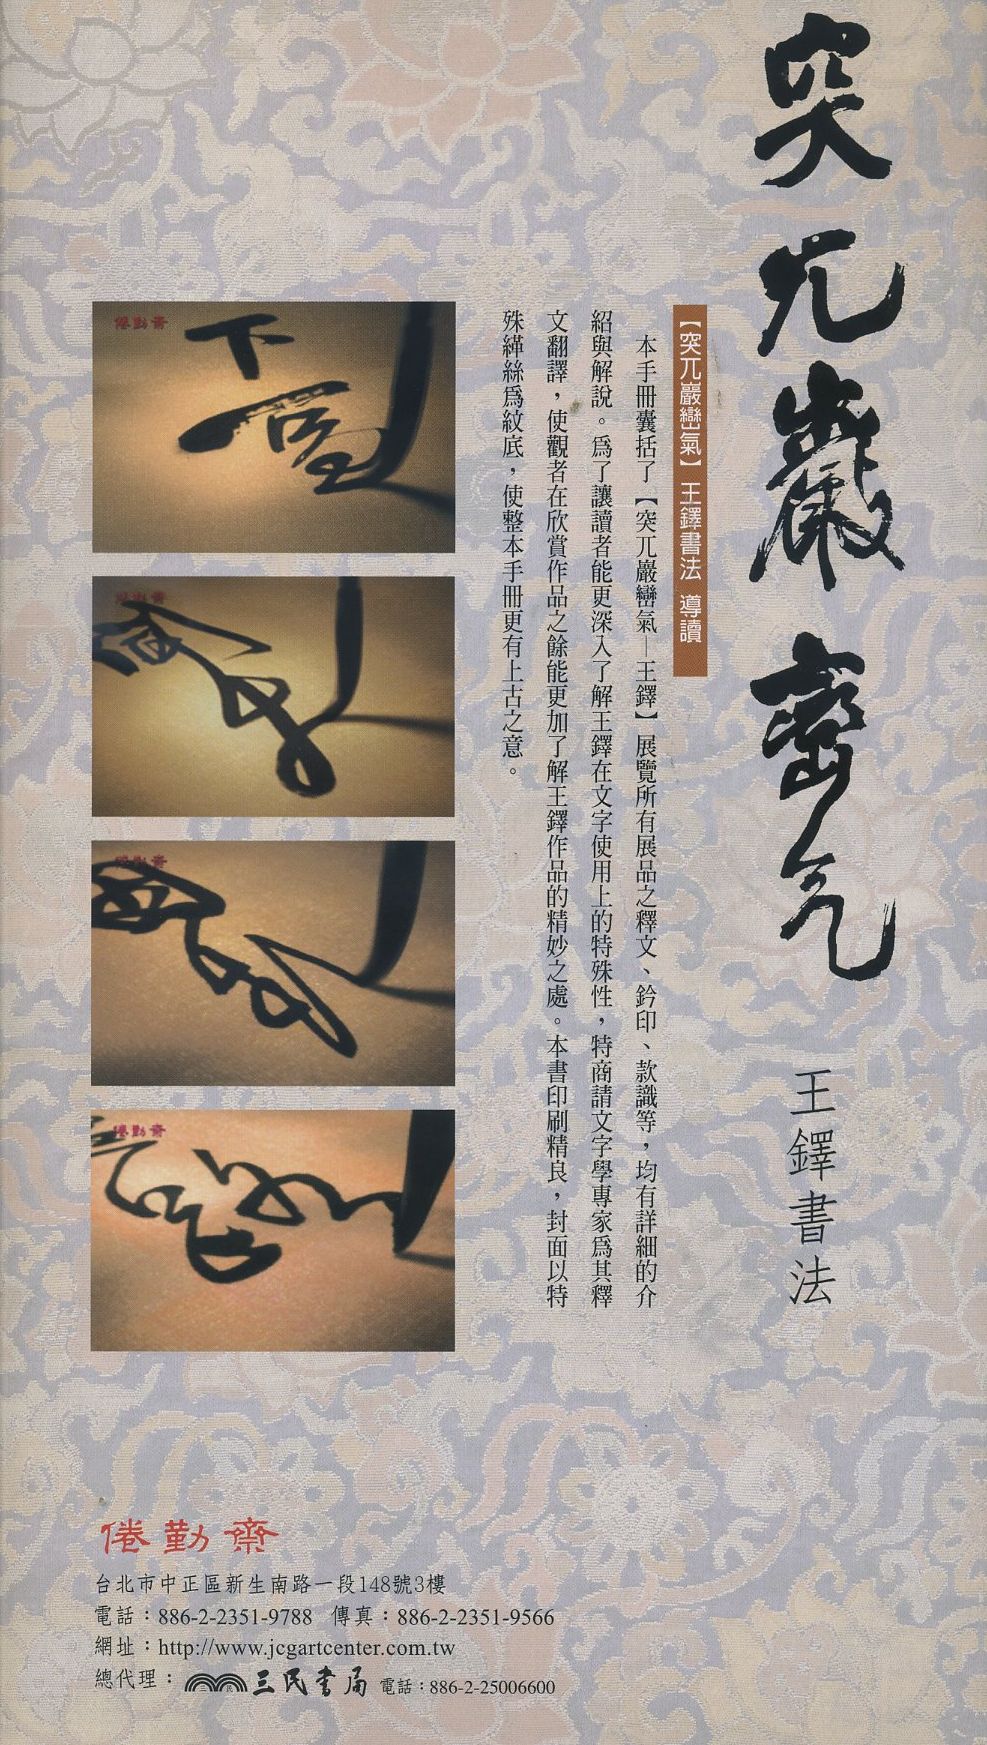 突兀巖巒氣
王鐸書法
【突兀巖巒氣】王鐸書法 導讀
本手冊囊括了【突兀巖巒氣—王鐸】展覽所有展品之釋文、鈐印、款識等，均有詳細的介
紹與解說。為了讓讀者能更深入了解王鐸在文字使用上的特殊性，特商請文字學專家為其釋
文翻譯，使觀者在欣賞作品之餘能更加了解王鐸作品的精妙之處。本書印刷精良，封面以特
殊緙絲為紋底，使整本手冊更有上古之意。
倦勤齋
倦勤齋
倦勤齋
倦勤齋
倦勤齋
台北市中正區新生南路一段148號3樓
電話：886-2-2351-9788 傳真：886-2-2351-9566
網址：http://www.jcgartcenter.com.tw
總代理：三民書局 電話：886-2-25006600